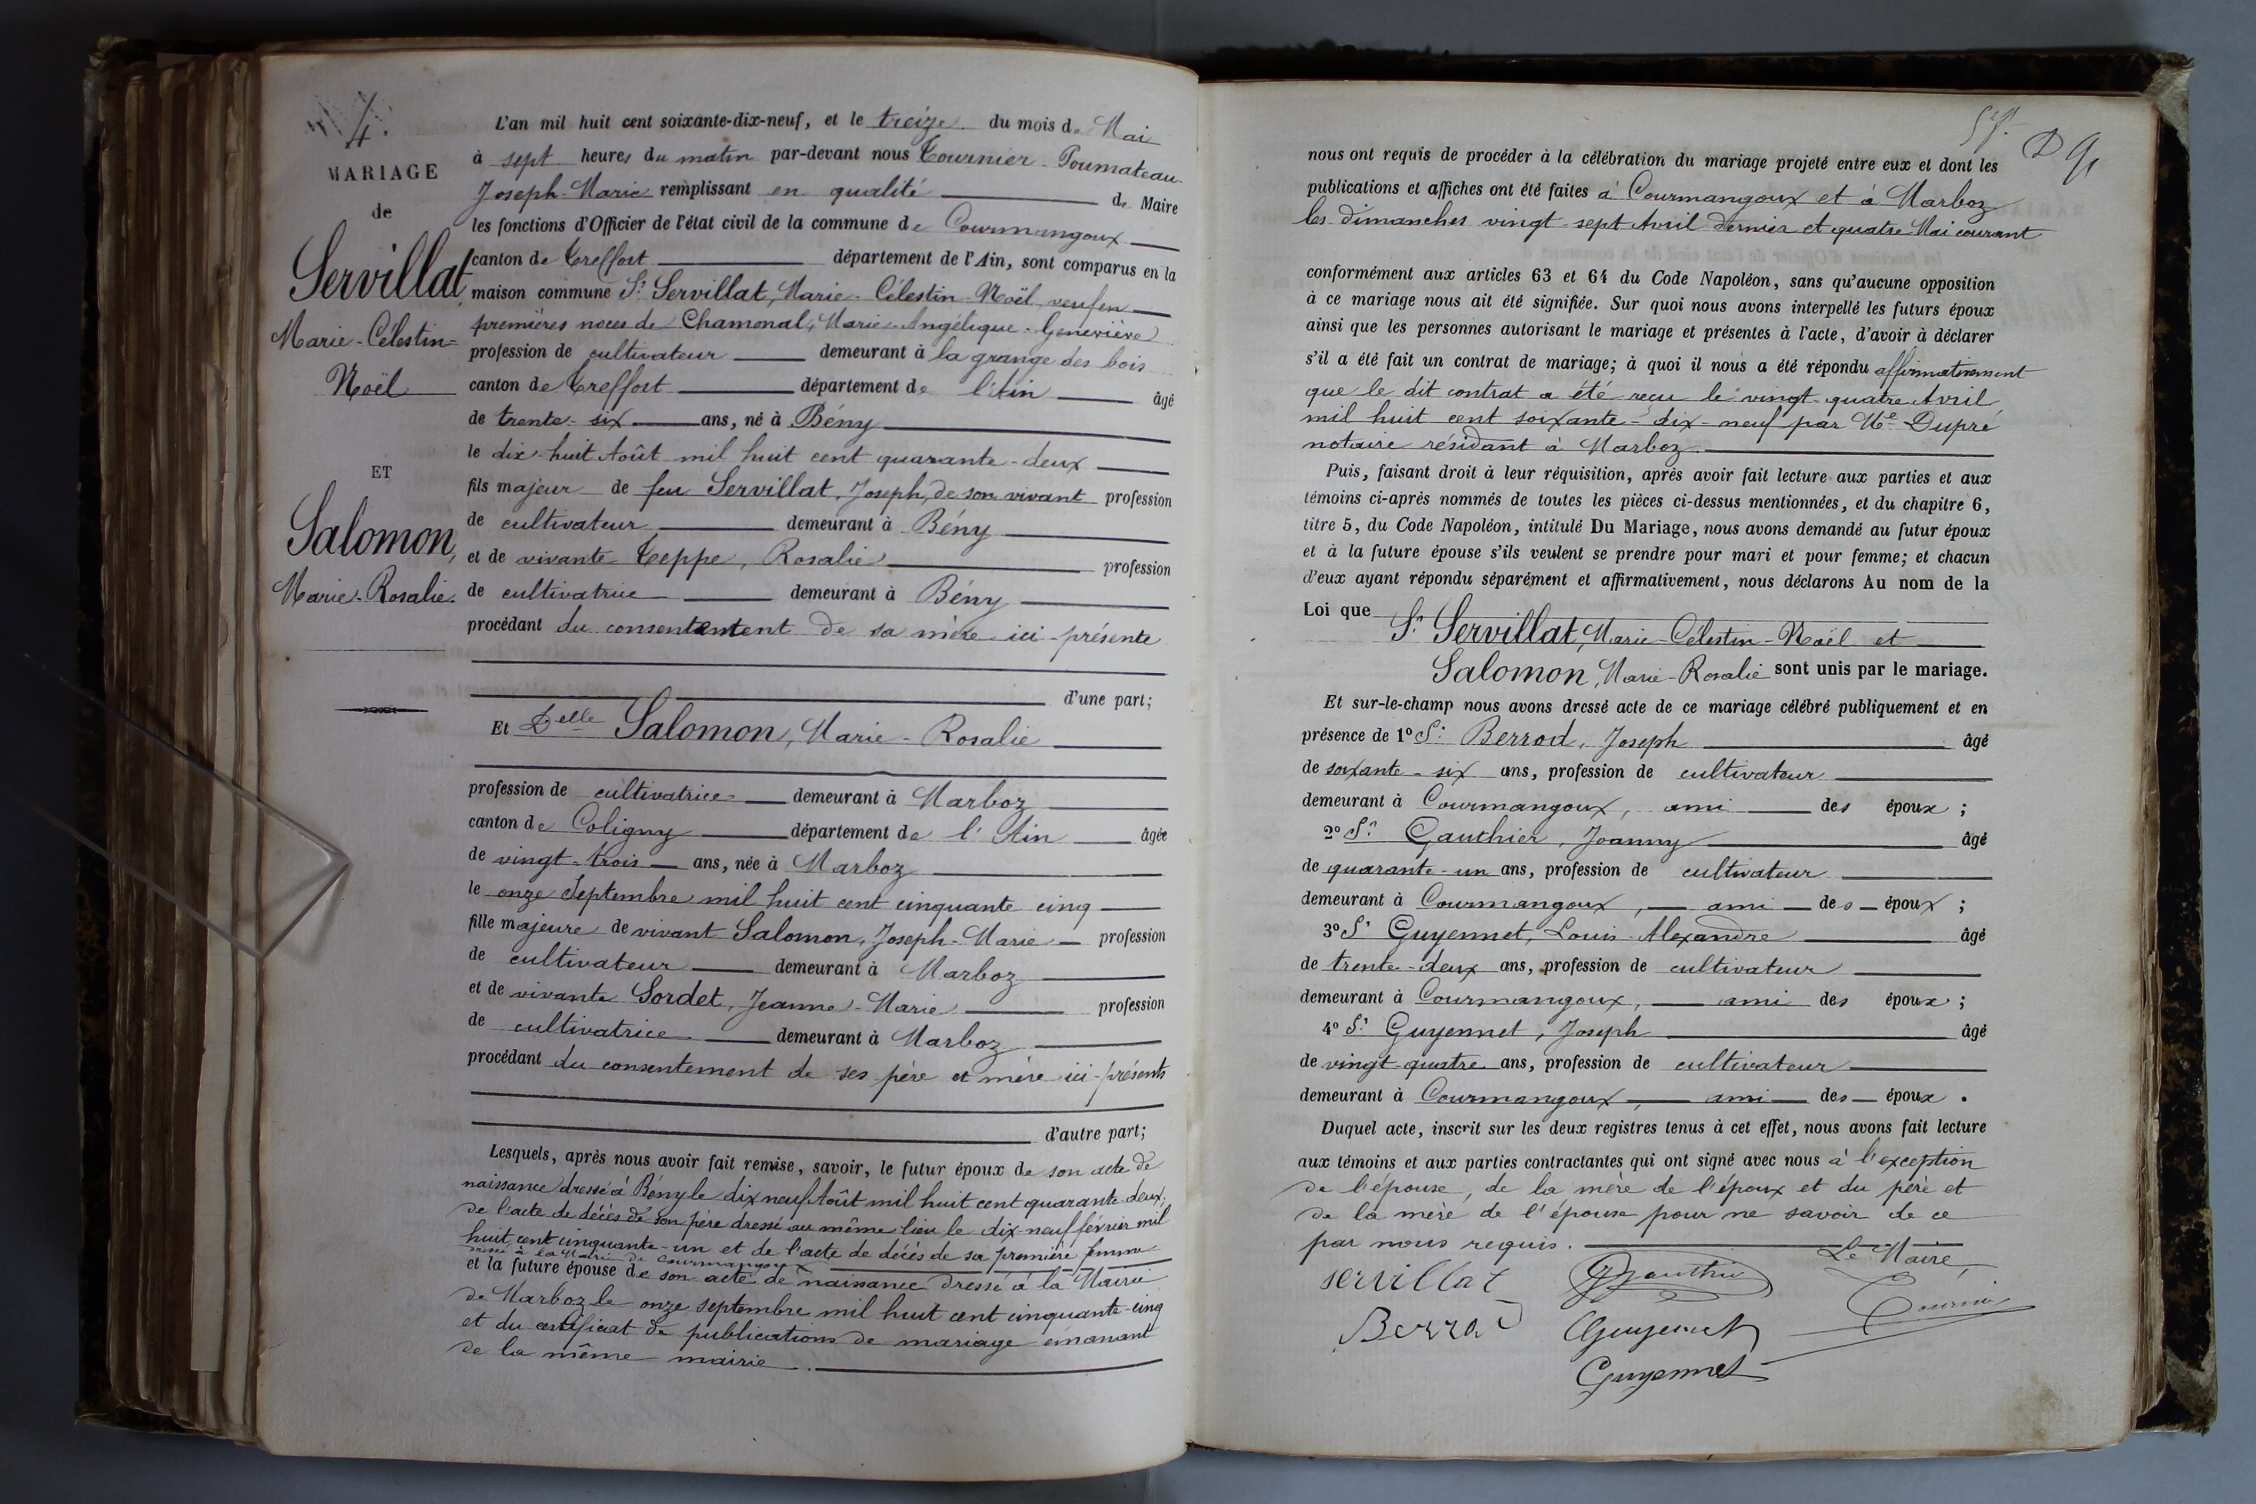 4.
MARIAGE
de
Servillat
Marie-Célestin-
Noël
ET
Salomon,
Marie-Rosalie.
L'an mil huit cent soixante-dix-neuf, et le treize du mois de Mai
à sept heures du matin par-devant nous Tournier-Poumateau
Joseph-Marie remplissant en qualité de Maire
les fonctions d'Officier de l'état civil de la commune de Courmangoux
canton de Treffort département de l'Ain, sont comparus en la
maison commune Sr Servillat, Marie-Célestin-Noël, veuf en
premières noces de Chamonal, Marie-Angélique-Geneviève
profession de cultivateur demeurant à la grange des bois
canton de Treffort département de l'Ain âgé
de trente-six ans, né à Bény
le dix-huit Août mil huit cent quarante-deux
fils majeur de feu Servillat, Joseph, de son vivant profession
de cultivateur demeurant à Bény
et de vivante Teppe, Rosalie profession
de cultivatrice demeurant à Bény
procédant du consentement de sa mère ici-présente
d'une part;
Et Delle Salomon, Marie-Rosalie
profession de cultivatrice demeurant à Marboz
canton de Coligny département de l'Ain âgée
de vingt-trois ans, née à Marboz
le onze Septembre mil huit cent cinquante cinq
fille majeure de vivant Salomon, Joseph-Marie profession
de cultivateur demeurant à Marboz
et de vivante Sordet, Jeanne-Marie profession
de cultivatrice demeurant à Marboz
procédant du consentement de ses père et mère ici-présents
d'autre part;
Lesquels, après nous avoir fait remise, savoir, le futur époux de son acte de
naissance dressé à Bény le dix neuf Août mil huit cent quarante-deux,
de l'acte de décès de son père dressé au même lieu le dix-neuf février mil
huit cent cinquante-un et de l'acte de décès de sa première femme
dressé à la Mairie de Courmangoux
et la future épouse de son acte de naissance dressé à la Mairie
de Marboz le onze septembre mil huit cent cinquante-cinq
et du certificat de publications de mariage émanant
de la même mairie.
nous ont requis de procéder à la célébration du mariage projeté entre eux et dont les
publications et affiches ont été faites à Courmangoux et à Marboz
les dimanches vingt-sept Avril dernier et quatre Mai courant
conformément aux articles 63 et 64 du Code Napoléon, sans qu'aucune opposition
à ce mariage nous ait été signifiée. Sur quoi nous avons interpellé les futurs époux
ainsi que les personnes autorisant le mariage et présentes à l'acte, d'avoir à déclarer
s'il a été fait un contrat de mariage; à quoi il nous a été répondu affirmativement
que le dit contrat a été reçu le vingt-quatre Avril
mil huit cent soixante-dix-neuf par Me Dupré
notaire résidant à Marboz.
Puis, faisant droit à leur réquisition, après avoir fait lecture aux parties et aux
témoins ci-après nommés de toutes les pièces ci-dessus mentionnées, et du chapitre 6,
titre 5, du Code Napoléon, intitulé Du Mariage, nous avons demandé au futur époux
et à la future épouse s'ils veulent se prendre pour mari et pour femme; et chacun
d'eux ayant répondu séparément et affirmativement, nous déclarons Au nom de la
Loi que
Sr Servillat, Marie-Célestin-Noël et
Salomon, Marie-Rosalie sont unis par le mariage.
Et sur-le-champ nous avons dressé acte de ce mariage célébré publiquement et en
présence de 1º Sr Berrod, Joseph âgé
de soixante-six ans, profession de cultivateur
demeurant à Courmangoux, ami des époux;
2º Sr Gauthier, Joanny âgé
de quarante-un ans, profession de cultivateur
demeurant à Courmangoux, ami des époux;
3º Sr Guyennet, Louis-Alexandre âgé
de trente-deux ans, profession de cultivateur
demeurant à Courmangoux, ami des époux;
4º Sr Guyennet, Joseph âgé
de vingt-quatre ans, profession de cultivateur
demeurant à Courmangoux, ami des époux.
Duquel acte, inscrit sur les deux registres tenus à cet effet, nous avons fait lecture
aux témoins et aux parties contractantes qui ont signé avec nous à l'exception
de l'épouse, de la mère de l'époux et du père et
de la mère de l'épouse pour ne savoir de ce
par nous requis.
Le Maire,
Servillat
Gauthier
Tournier
Berrod
Guyennet
Guyennet